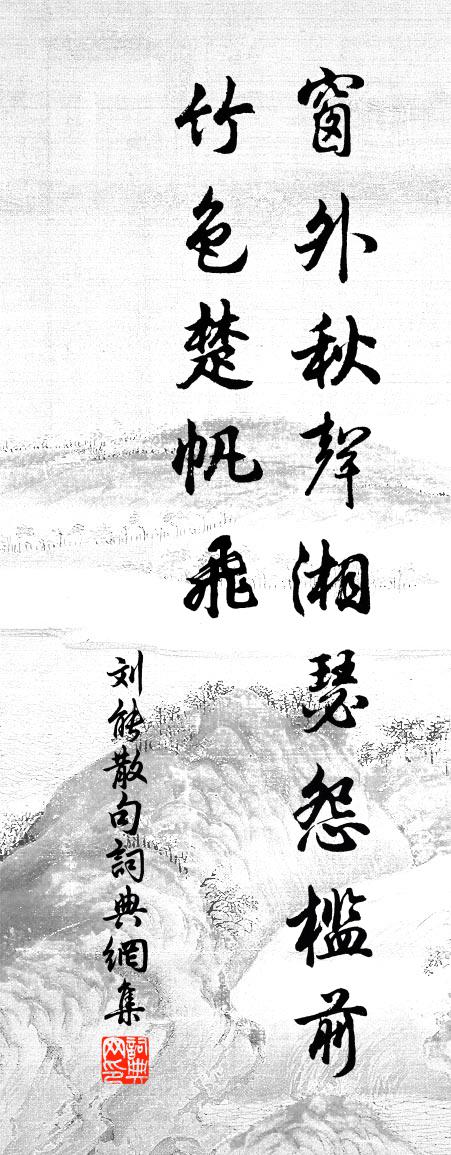 窗外秋聲湘瑟怨檻前
竹色楚帆飛
刘能散句詞典網集
詞典
网印